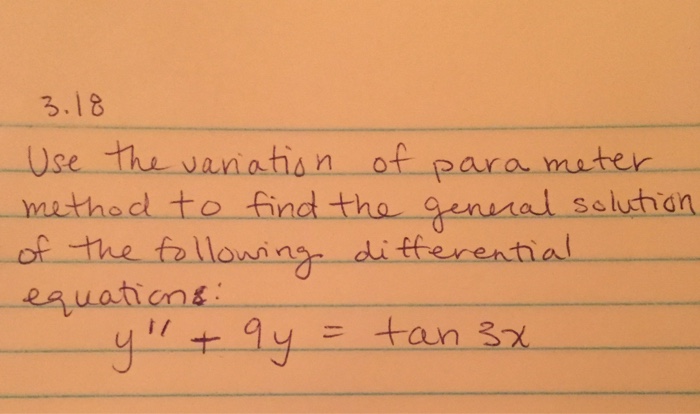 3.18
Use the variation of parameter
method to find the general solution
of the following differential
equations:
y'' + 9y = tan 3x